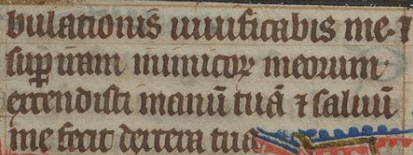 bulationis uiuificabis me· ⁊
sup iram inimicoꝝ meorum
extendisti manū tuā ⁊ saluū
me fecit dextera tua